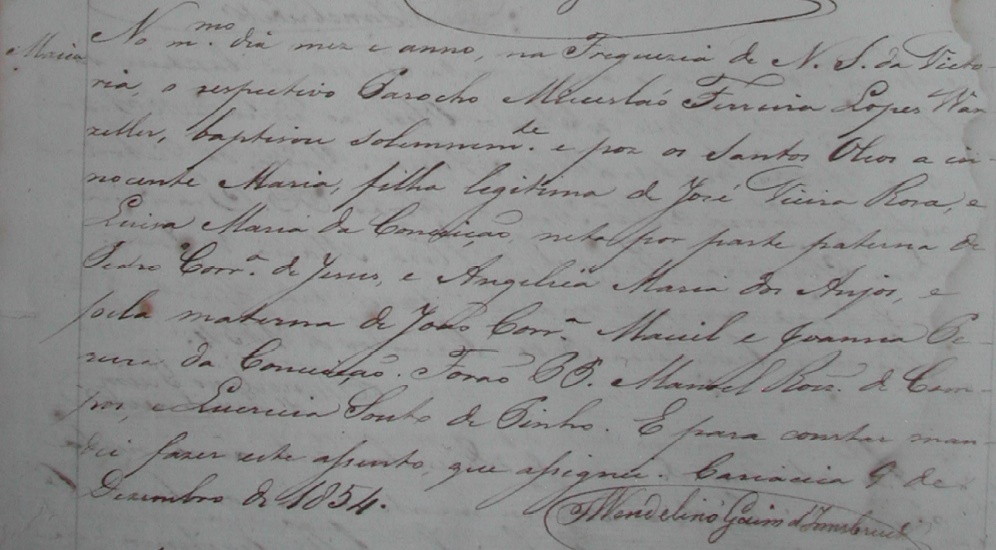 Maria
No mmo. dia mez e anno, na Freguezia de N. S. da Victo-
ria, o respectivo Parocho Miceslaó Ferreira Lopes Wan-
zeller, baptisou solemnemte. e poz os Santos Oleos a in-
nocente Maria, filha legitima de José Vieira Rosa, e
Luisa Maria da Conceição, neta por parte paterna de
Pedro Corra. de Jesus, e Angelica Maria dos Anjos, e
pela materna de João Corra. Maciel e Joanna Pe-
reira da Conceição. Forão PP. Manoel Roiz. de Cam-
pos, e Lucrecia Souto de Pinho. E para constar man-
dei fazer este assento, que assignei. Cariacica 9 de
Dezembro de 1854.
Wendelino Gaim d'Innsbruck